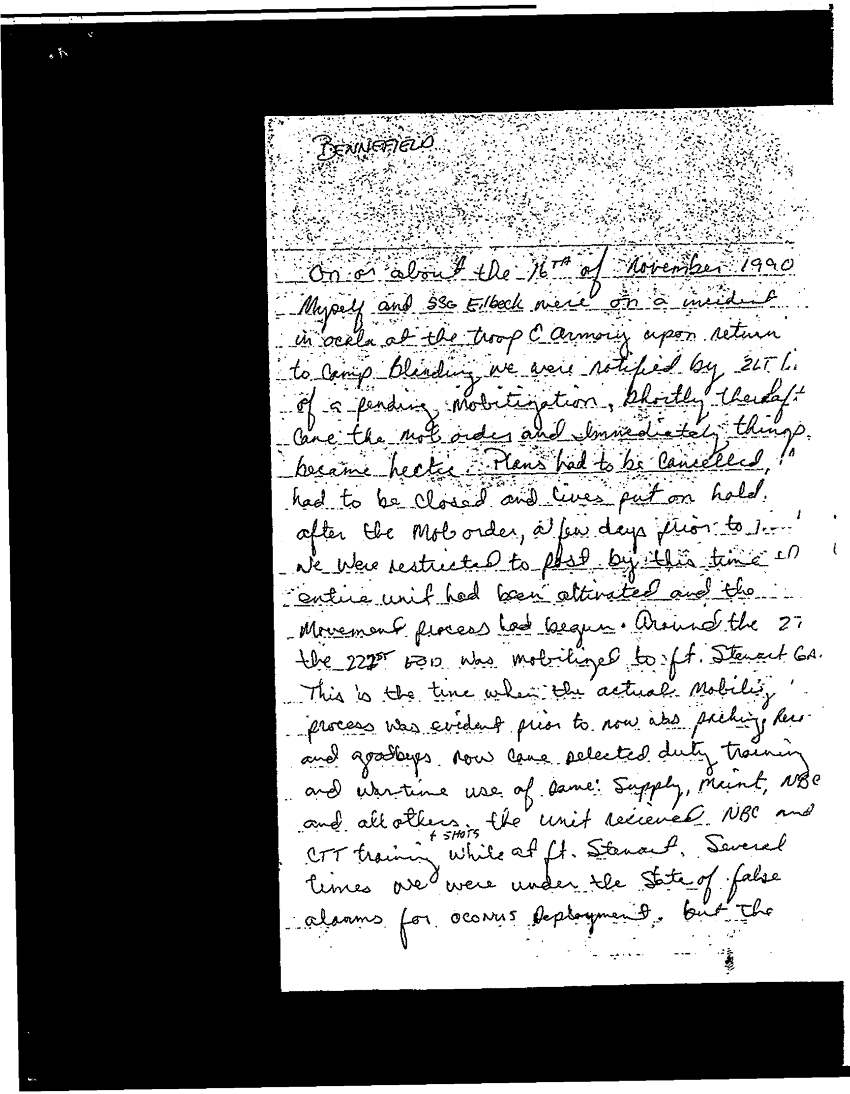 BENNEFIELD
On or about the 16TH of November 1990
Myself and SSG Eilbeck were on a incident
in ocala at the troop C armory upon return
to Camp Blanding we were notified by 2LT
of a pending Mobilization, Shortly
came the Mob order and Immediately things
became hectic. Plans had to be cancelled,
had to be closed and lives put on hold.
after the Mob order, a few days prior to
We Were restricted to post by this time
entire unit had been activated and the
Movement process had begun. Around the
the 221ST EOD was mobilized to ft. Stewart GA.
This is the time when the actual
process was evident prior to now was packing
and goodbyes now came selected duty training
and wartime use of same: Supply, Maint, NBC
and all others. the unit recieved NBC and
CTT training + SHOTS while at ft. Stewart. Several
times we were under the State of false
alarms for OCONUS Deployment. but the